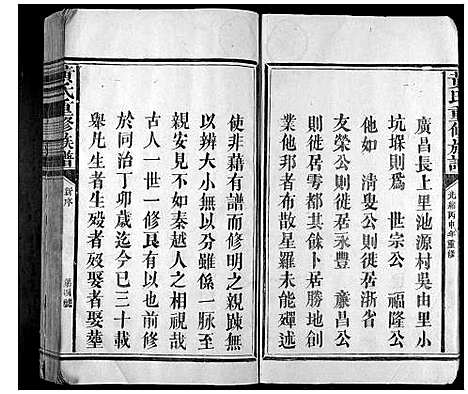 黃氏重修族譜
光緒丙申年重修
廣昌長上里池源村吳由里小
坑堁則爲 世宗公 福隆公
他如 清叟公則徙居浙省
友榮公則徙居永豐 㐮昌公
則徙居雩都其餘卜居勝地創
業他邦者散布星羅未能殫述
使非藉有譜而修明之親踈無
以辨大小無以分雖係一脉至
親安見不如秦越人之相視哉
古人一世一修良有以也前修
於同治丁卯歲迄今已三十載
舉凡生者生歿者歿娶者娶塟
黃氏重修族譜
新序
第四號